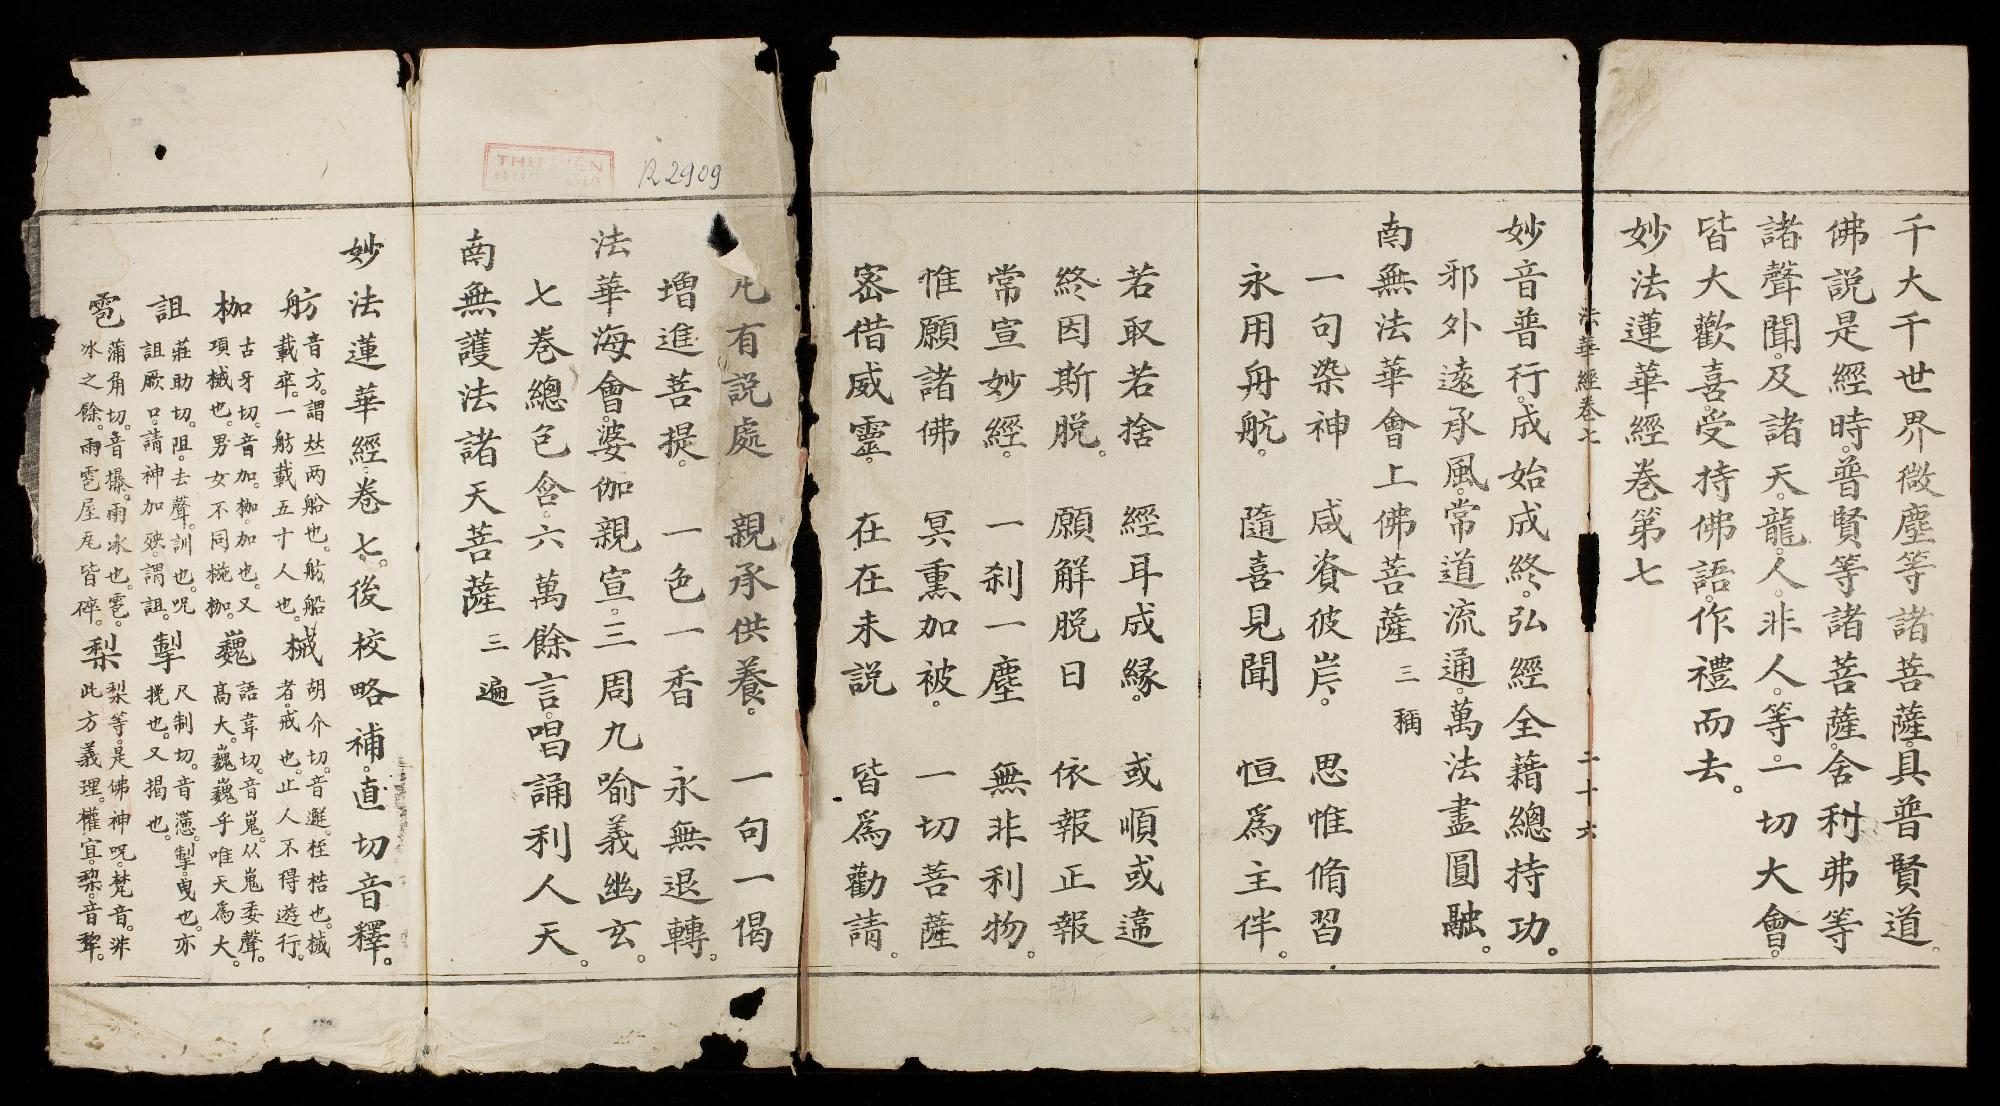 千大千世界微塵等諸菩薩。具普賢道。
佛說是經時。普賢等諸菩薩。舍利弗等
諸聲聞。及諸天。龍。人。非人。等。一切大會。
皆大歡喜。受持佛語。作禮而去。
妙法蓮華經卷第七
法華經卷七 二十六
妙音普行。成始成終。弘經全藉總持功。
邪外遠承風。常道流通。萬法盡圓融。
南無法華會上佛菩薩 三稱
一句染神 咸資彼岸。 思惟脩習
永用舟航。 隨喜見聞 恒爲主伴。
若取若捨 經耳成緣。 或順或違
終因斯脫。 願解脫日 依報正報
常宣妙經。 一剎一塵 無非利物。
惟願諸佛 冥熏加被。 一切菩薩
密借威靈。 在在未說 皆爲勸請。
凡有說處 親承供養。 一句一偈
增進菩提。 一色一香 永無退轉。
法華海會。婆伽親宣。三周九喻義幽玄。
七卷總包含。六萬餘言。唱誦利人天。
南無護法諸天菩薩 三遍
妙法蓮華經卷七。後校略補。直切音釋。
舫 音方。謂並两船也。舫船
載卒。一舫載五十人也。
械 胡介切。音邂。桎梏也。械
者。戒也。止人不得遊行。
枷 古牙切。音加。枷。加也。又
項械也。男女不同梐枷。
巍 語韋切。音嵬。从嵬委聲。
高大。巍巍乎唯天爲大。
詛 莊助切。阻。去聲。訓也。呪
詛厥口。請神加殃。謂詛。
掣 尺制切。音懘。掣。曳也。亦
挽也。又揭也。
雹 蒲角切。音撲。雨冰也。雹。
冰之餘。雨雹屋瓦皆碎。
梨 梨等。是佛神呪。梵音。非
此方義理。權宜。梨。音犂。
THƯ VIỆN
QUỐC GIA
R.2909